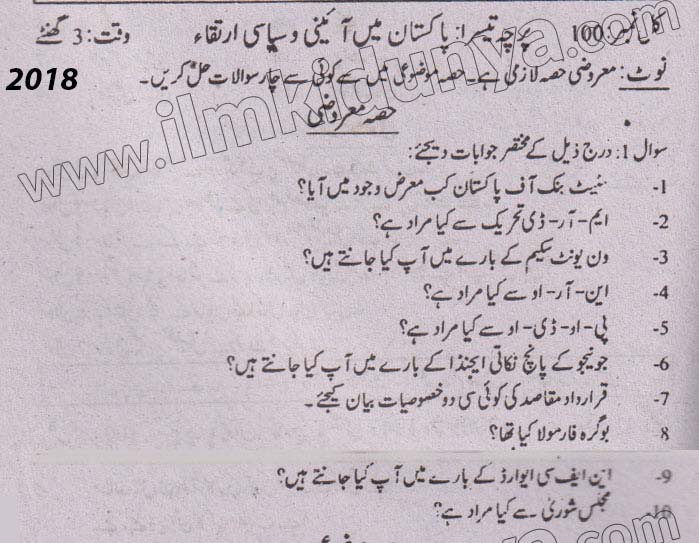 کل نمبر: 100 پرچہ تیسرا: پاکستان میں آئینی و سیاسی ارتقاء وقت: 3 گھنٹے
2018
نوٹ: معروضی حصہ لازمی ہے۔ حصہ موضوعی میں سے کوئی سے چار سوالات حل کریں۔
حصہ معروضی
سوال 1: درج ذیل کے مختصر جوابات دیجئے:
-1 سٹیٹ بنک آف پاکستان کب معرض وجود میں آیا؟
-2 ایم-آر-ڈی تحریک سے کیا مراد ہے؟
-3 ون یونٹ سکیم کے بارے میں آپ کیا جانتے ہیں؟
-4 این-آر-او سے کیا مراد ہے؟
-5 پی-او-ڈی-او سے کیا مراد ہے؟
-6 جونیجو کے پانچ نکاتی ایجنڈا کے بارے میں آپ کیا جانتے ہیں؟
-7 قرارداد مقاصد کی کوئی سی دو خصوصیات بیان کیجئے۔
-8 بوگرہ فارمولا کیا تھا؟
-9 این ایف سی ایوارڈ کے بارے میں آپ کیا جانتے ہیں؟
-10 مجلس شوریٰ سے کیا مراد ہے؟
www.ilmkidunya.com